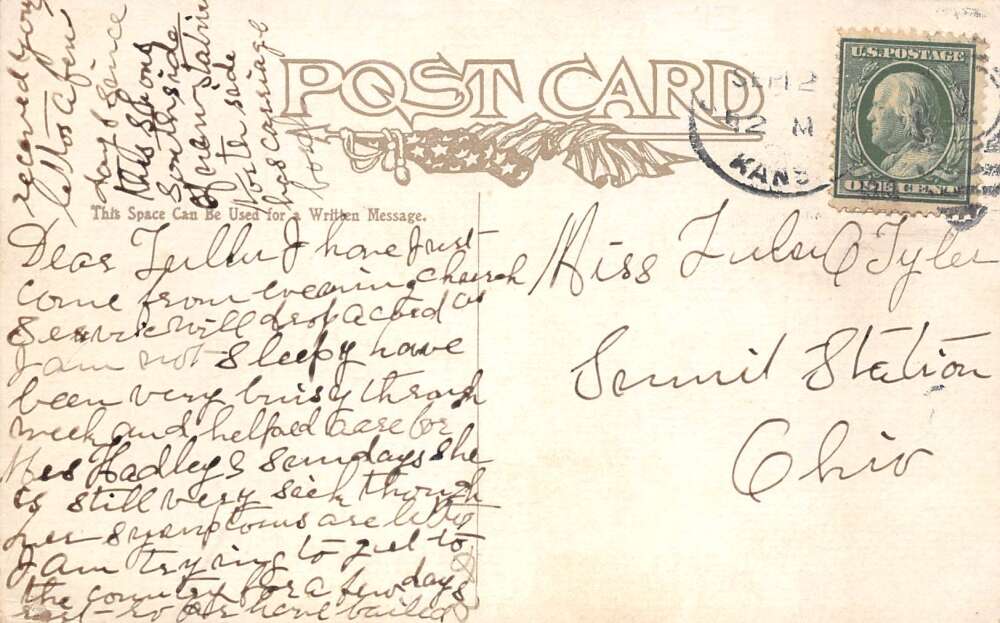 received your
letter a few
day since
this shows
South side
of new station
North side
has carriage
POST CARD
U.S. POSTAGE
SEP 12
12 M
KANS
ONE CENT
This Space Can Be Used for a Written Message.
Dear I have Just
come from evening church
service will drop a card as
I am not sleepy have
been very buisy through
week and helped care for
Mrs Hadley 2 sundays she
is still very sick though
her symptoms are better
I am trying to get to
the country for a few days
rest - so far have bailed
Miss Tyler
Sumit Station
Ohio